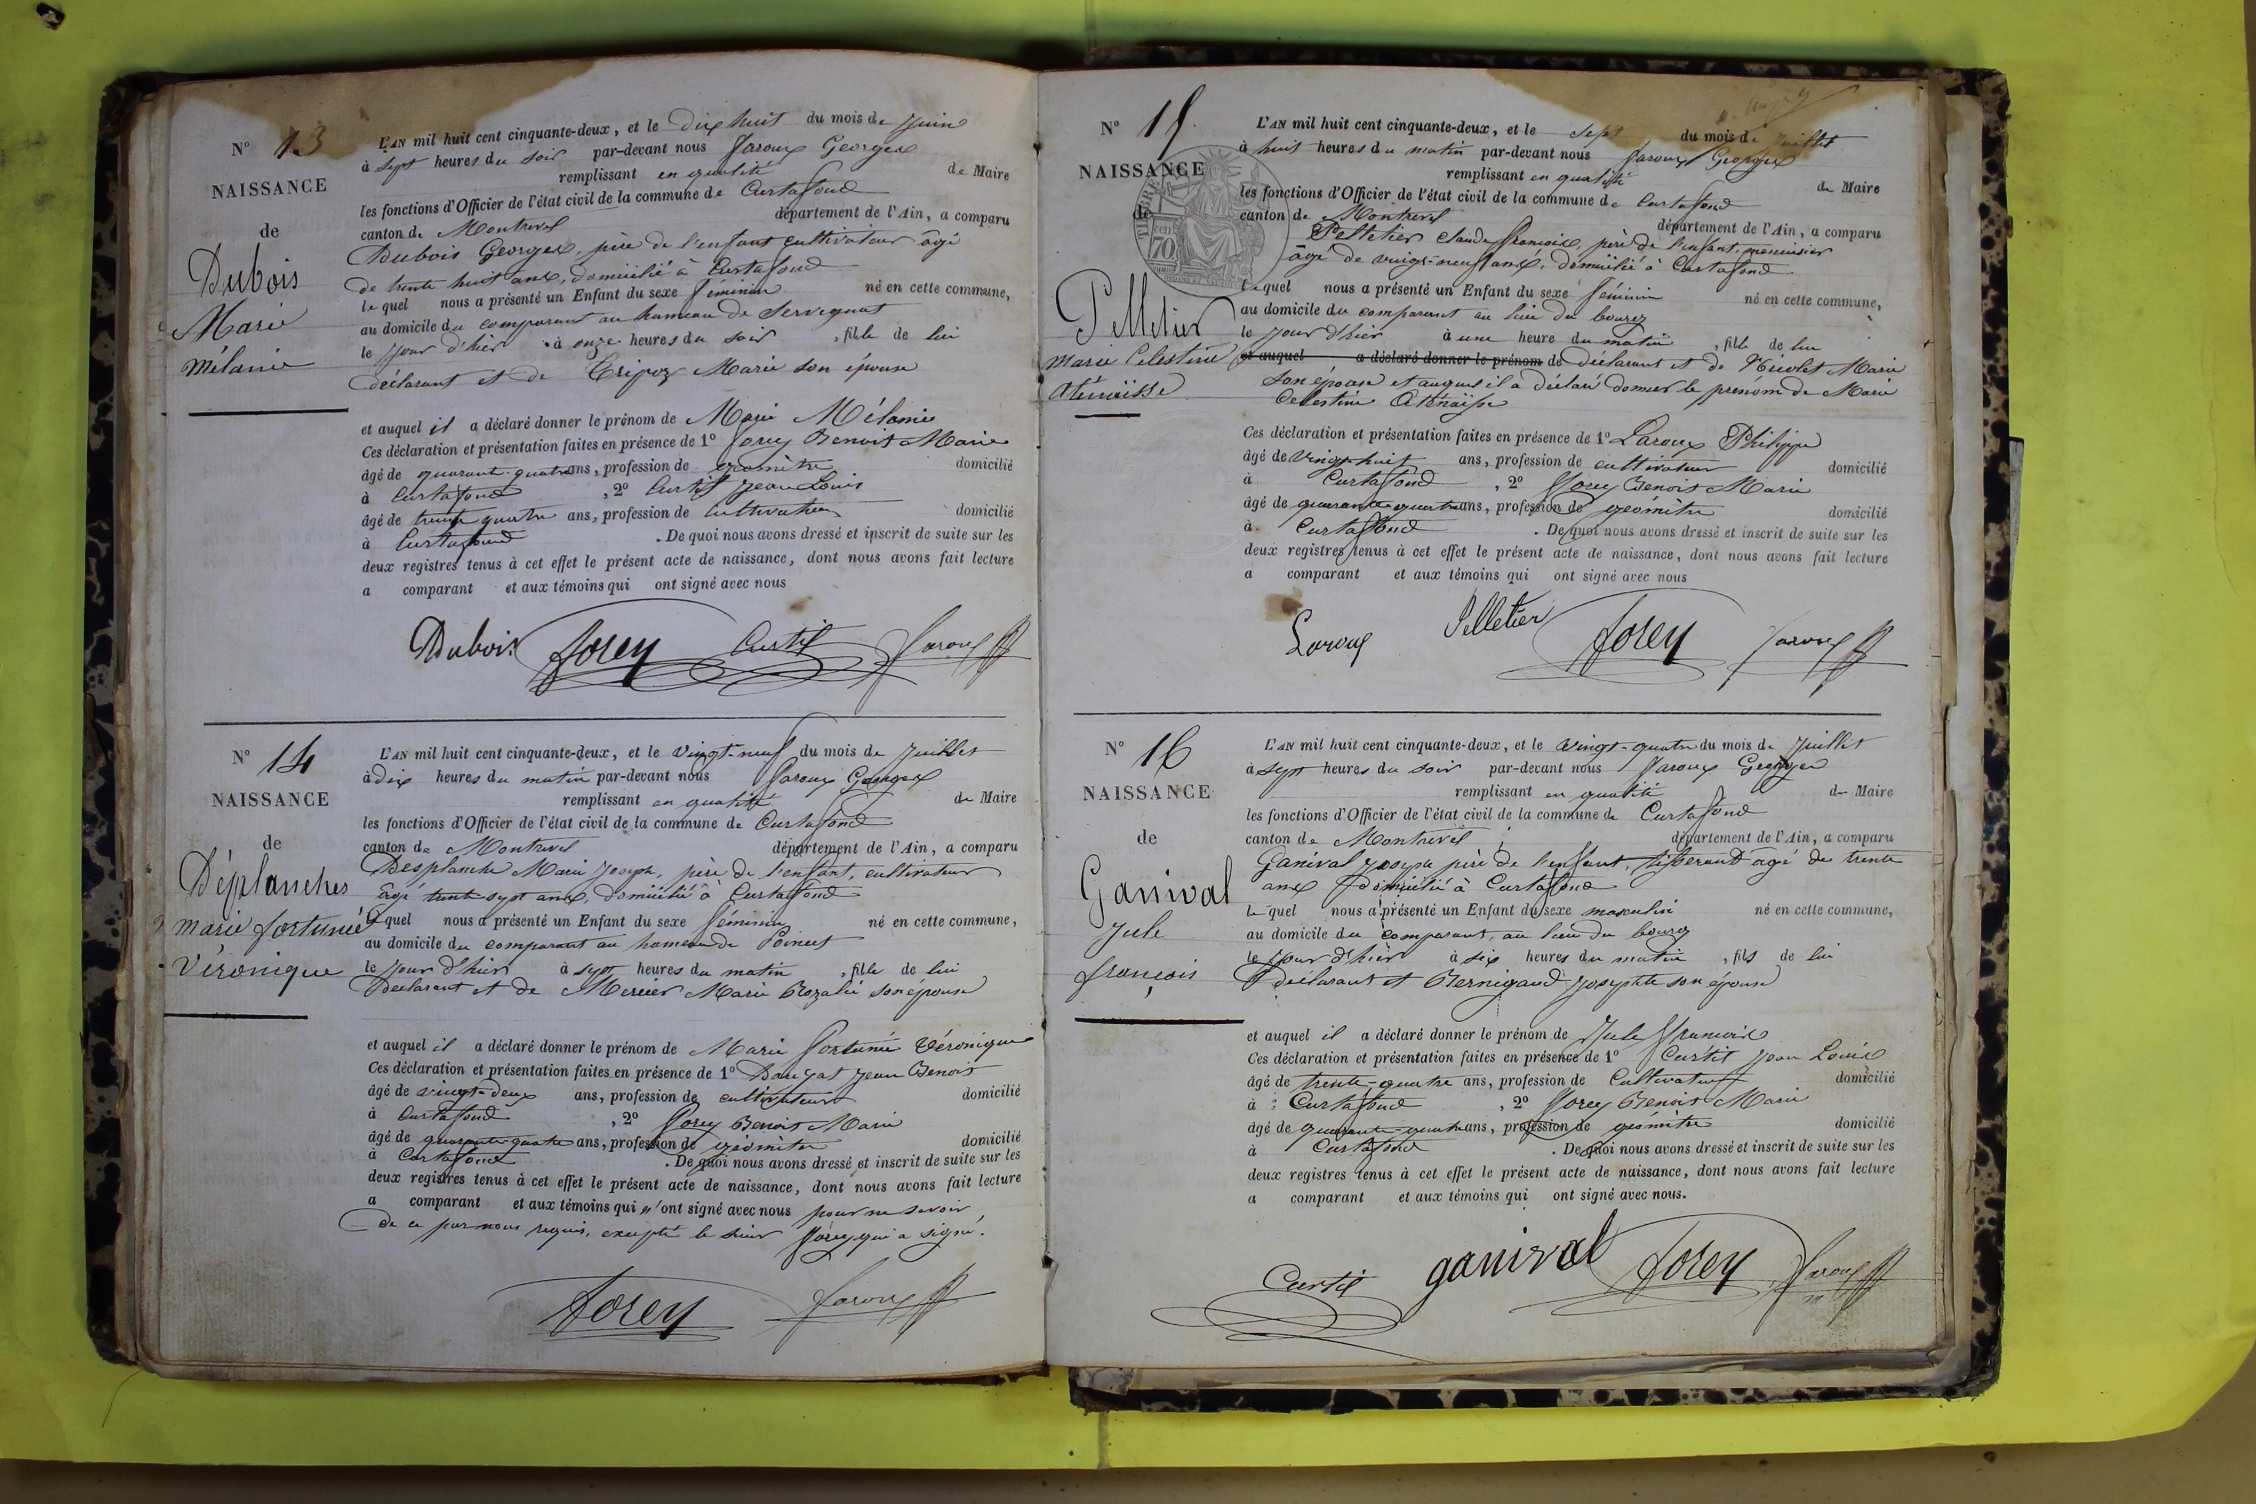 N° 13
NAISSANCE
de
Dubois
Marie
Mélanie
L'AN mil huit cent cinquante-deux, et le dix huit du mois de Juin
à sept heures du soir par-devant nous Faroux Georges
remplissant en qualité de Maire
les fonctions d'Officier de l'état civil de la commune de Curtafond
canton de Montrevel département de l'Ain, a comparu
Dubois Georges, père de l'enfant cultivateur âgé
de trente huit ans, domicilié à Curtafond
le quel nous a présenté un Enfant du sexe féminin né en cette commune,
au domicile du comparant au hameau de Servignat
le jour d'hier à onze heures du soir, fille de lui
déclarant et de Tripoz Marie son épouse
et auquel il a déclaré donner le prénom de Marie Mélanie
Ces déclaration et présentation faites en présence de 1° Forey Benoit Marie
âgé de quarante-quatre ans, profession de géomètre domicilié
à Curtafond, 2° Curtil Jean Louis
âgé de trente quatre ans, profession de Cultivateur domicilié
à Curtafond. De quoi nous avons dressé et inscrit de suite sur les
deux registres tenus à cet effet le présent acte de naissance, dont nous avons fait lecture
a comparant et aux témoins qui ont signé avec nous
Dubois Forey Curtil Faroux
N° 14
NAISSANCE
de
Déplanches
marie fortunée
Véronique
L'AN mil huit cent cinquante-deux, et le vingt-neuf du mois de Juillet
à dix heures du matin par-devant nous Faroux Georges
remplissant en qualité de Maire
les fonctions d'Officier de l'état civil de la commune de Curtafond
canton de Montrevel département de l'Ain, a comparu
Desplanche Marie Joseph, père de l'enfant, cultivateur
âgé trente-sept ans, domicilié à Curtafond
le quel nous a présenté un Enfant du sexe féminin né en cette commune,
au domicile du comparant au hameau de
le jour d'hier à sept heures du matin, fille de lui
Déclarant et de Mercier Marie Rozalie son épouse
et auquel il a déclaré donner le prénom de Marie Fortunée Véronique
Ces déclaration et présentation faites en présence de 1° Jean Benoit
âgé de vingt-deux ans, profession de cultivateur domicilié
à Curtafond, 2° Forey Benoit Marie
âgé de quarante-quatre ans, profession de géomètre domicilié
à Curtafond. De quoi nous avons dressé et inscrit de suite sur les
deux registres tenus à cet effet le présent acte de naissance, dont nous avons fait lecture
a comparant et aux témoins qui n'ont signé avec nous pour ne savoir
de ce par nous requis, excepté le sieur Forey qui a signé.
Forey Faroux
N° 15.
NAISSANCE
de
Pelletier
Marie Celestine
Aténaïsse
L'AN mil huit cent cinquante-deux, et le sept du mois de Juillet
à huit heures du matin par-devant nous Faroux Georges
remplissant en qualité de Maire
les fonctions d'Officier de l'état civil de la commune de Curtafond
canton de Montrevel département de l'Ain, a comparu
Pelletier Claude François, père de l'enfant, menuisier
âgé de vingt-neuf ans, domicilié à Curtafond
le quel nous a présenté un Enfant du sexe féminin né en cette commune,
au domicile du comparant au lieu du bourg
le jour d'hier à une heure du matin, fille de lui
et auquel a déclaré donner le prénom de déclarant et de Nicolet Marie
son épouse et auquel il a déclaré donner le prénom de Marie
Celestine Aténaïsse
Ces déclaration et présentation faites en présence de 1° Laroux Philippe
âgé de vingt-huit ans, profession de cultivateur domicilié
à Curtafond, 2° Forey Benoit Marie
âgé de quarante-quatre ans, profession de géomètre domicilié
à Curtafond. De quoi nous avons dressé et inscrit de suite sur les
deux registres tenus à cet effet le présent acte de naissance, dont nous avons fait lecture
a comparant et aux témoins qui ont signé avec nous
Laroux Pelletier Forey Faroux
N° 16
NAISSANCE
de
Ganival
Jule
françois
L'AN mil huit cent cinquante-deux, et le vingt-quatre du mois de Juillet
à sept heures du soir par-devant nous Faroux Georges
remplissant en qualité de Maire
les fonctions d'Officier de l'état civil de la commune de Curtafond
canton de Montrevel département de l'Ain, a comparu
Ganival Joseph père de l'enfant, tisserand âgé de trente
ans domicilié à Curtafond
le quel nous a présenté un Enfant du sexe masculin né en cette commune,
au domicile du comparant, au lieu du bourg
le jour d'hier à six heures du matin, fils de lui
déclarant et Bernigaud Josephte son épouse
et auquel il a déclaré donner le prénom de Jule François
Ces déclaration et présentation faites en présence de 1° Curtil Jean Louis
âgé de trente-quatre ans, profession de Cultivateur domicilié
à Curtafond, 2° Forey Benoit Marie
âgé de quarante-quatre ans, profession de géomètre domicilié
à Curtafond. De quoi nous avons dressé et inscrit de suite sur les
deux registres tenus à cet effet le présent acte de naissance, dont nous avons fait lecture
a comparant et aux témoins qui ont signé avec nous.
Curtil ganival Forey Faroux